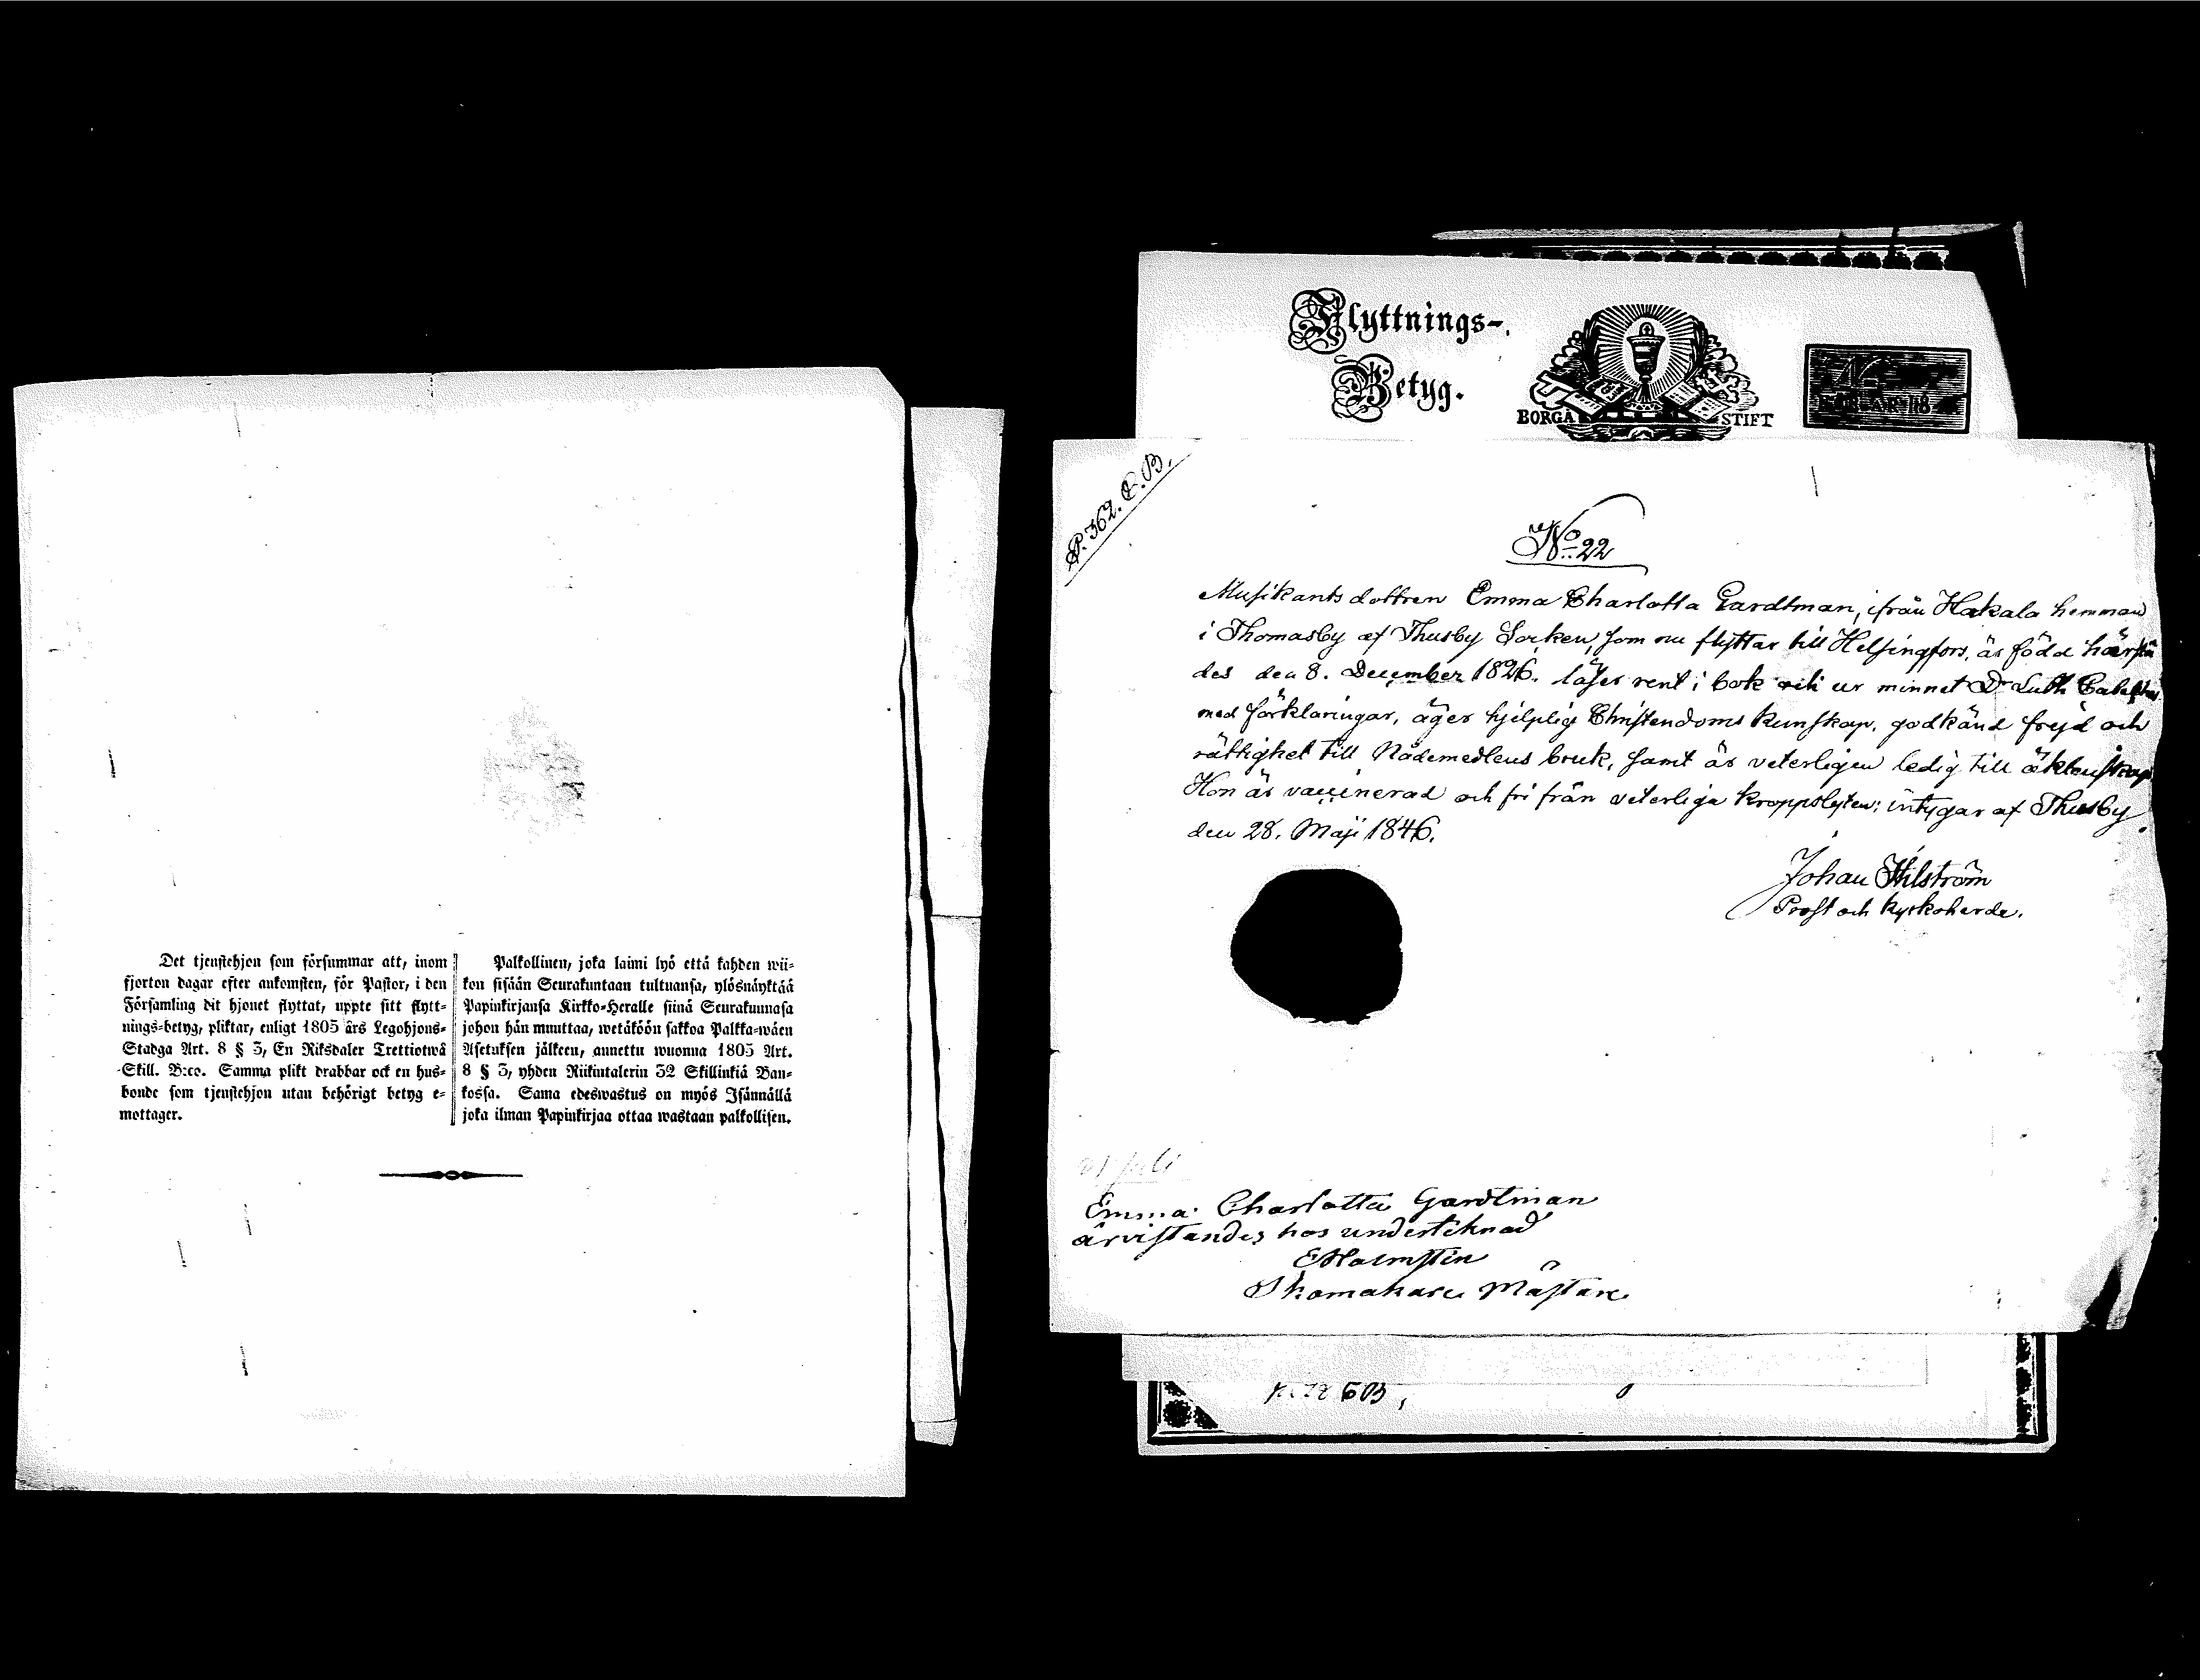 Det tjenstehjon som försummar att, inom
fjorton dagar efter ankomsten, för Pastor, i den
Församling dit hjonet flyttat, uppte sitt flytt-
nings-betyg, pliktar, enligt 1805 års Legohjons-
Stadga Art. 8 § 3, En Riksdaler Trettiotwå
Skill. B:co. Samma plikt drabbar ock en hus-
bonde som tjenstehjon utan behörigt betyg e-
mottager.
Palkollinen, joka laimi lyö että kahden wii-
kon sisään Seurakuntaan tultuansa, ylösnäyktää
Papinkirjansa Kirkko-Heralle siinä Seurakunnasa
johon hän muuttaa, wetäköön sakkoa Palkka-wäen
Asetuksen jälkeen, annettu wuonna 1805 Art.
8 § 3, yhden Riikintalerin 32 Skillinkiä Ban-
kossa. Sama edeswastus on myös Isännällä
joka ilman Papinkirjaa ottaa wastaan palkollisen.
Flyttnings-
Betyg.
BORGÅ STIFT
P. 362. C. B.
No. 22
Musikants dottren Emma Charlotta Gardtman, ifrån Hakala hemman
i Thomasby af Thusby Socken, som nu flyttar till Helsingfors, är född härstä
des den 8. December 1826. läser rent i bok och ur minnet Dr Luth. Catesches
med förklaringar, äger hjelplig Christendoms kunskap, godkänd frejd och
rättighet till Nådemedlens bruk, samt är veterligen ledig till äktenskap
Hon är vaccinerad och fri från veterliga kroppslyten; intygar af Thusby
den 28. Maji 1846.
Johan
Prost och Kyrkoherde.
Juli
Emma Charlotta Gardtman
är vistandes hos underteknad
E Holmstin
Skomakare Mästare